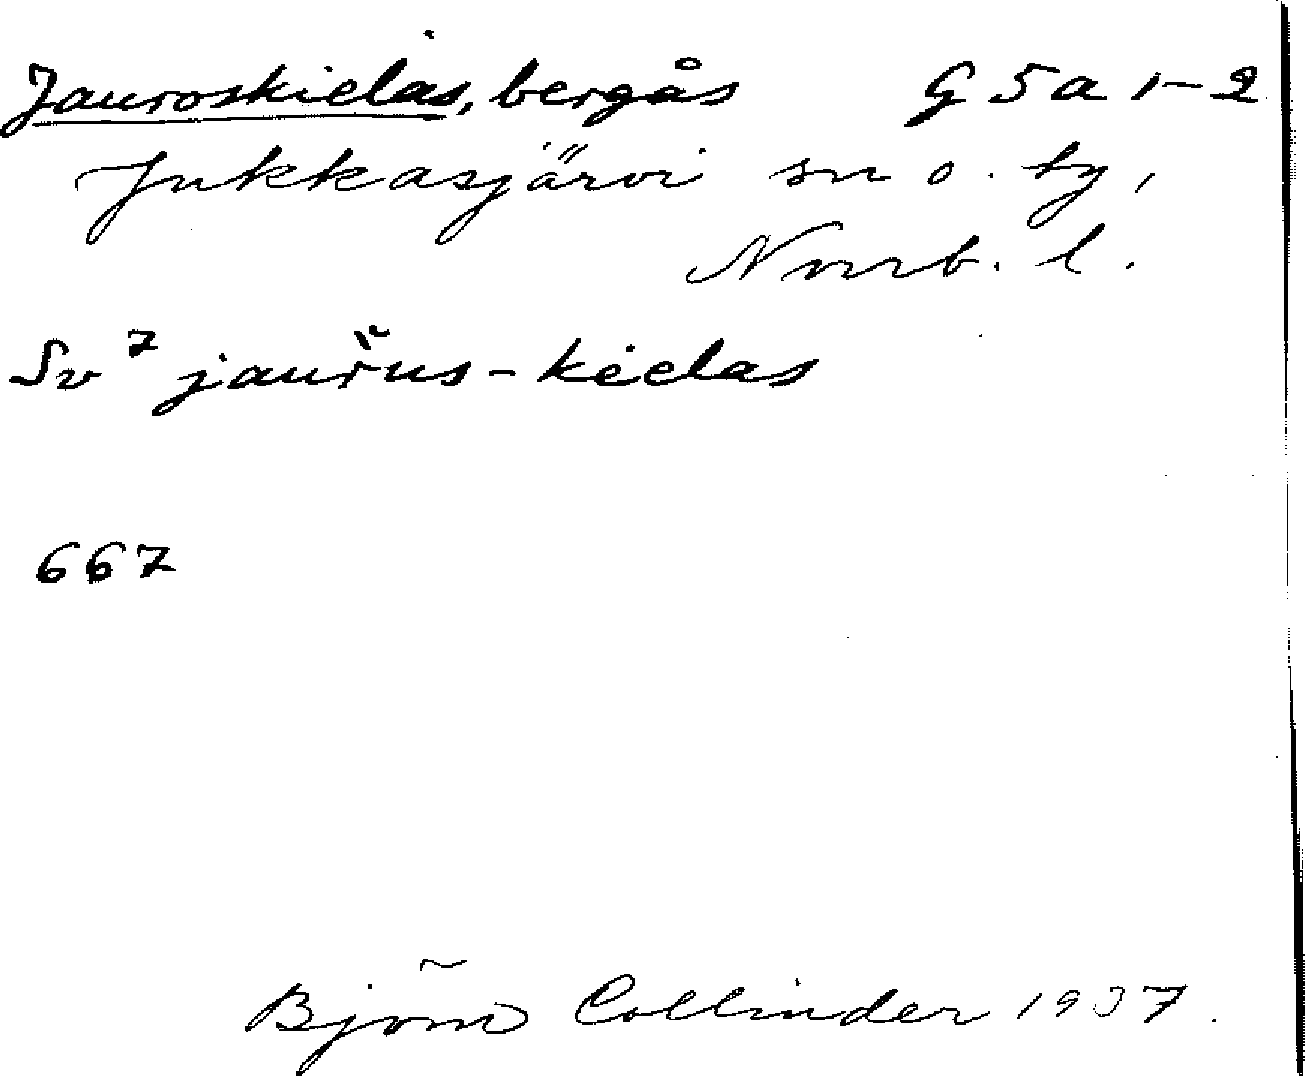 Jauroskielas, bergås G 5a 1-2
Jukkasjärvi sn o. tg,
Norrb. l.
Sv 7 jaurus-kielas
667
Björn Collinder 1937.